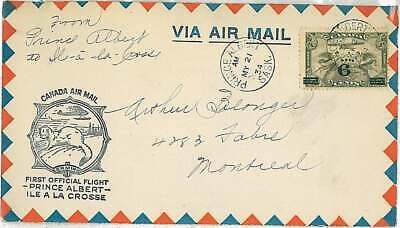 From
Prince Albert
to Ile-à-la-Crosse
VIA AIR MAIL
PRINCE ALBERT
AM
MY 21
34
SASK.
CANADA
6
CANADA AIR MAIL
Arthur Belonger
4283 Fabre
Montreal
FIRST OFFICIAL FLIGHT
PRINCE ALBERT
ILE A LA CROSSE